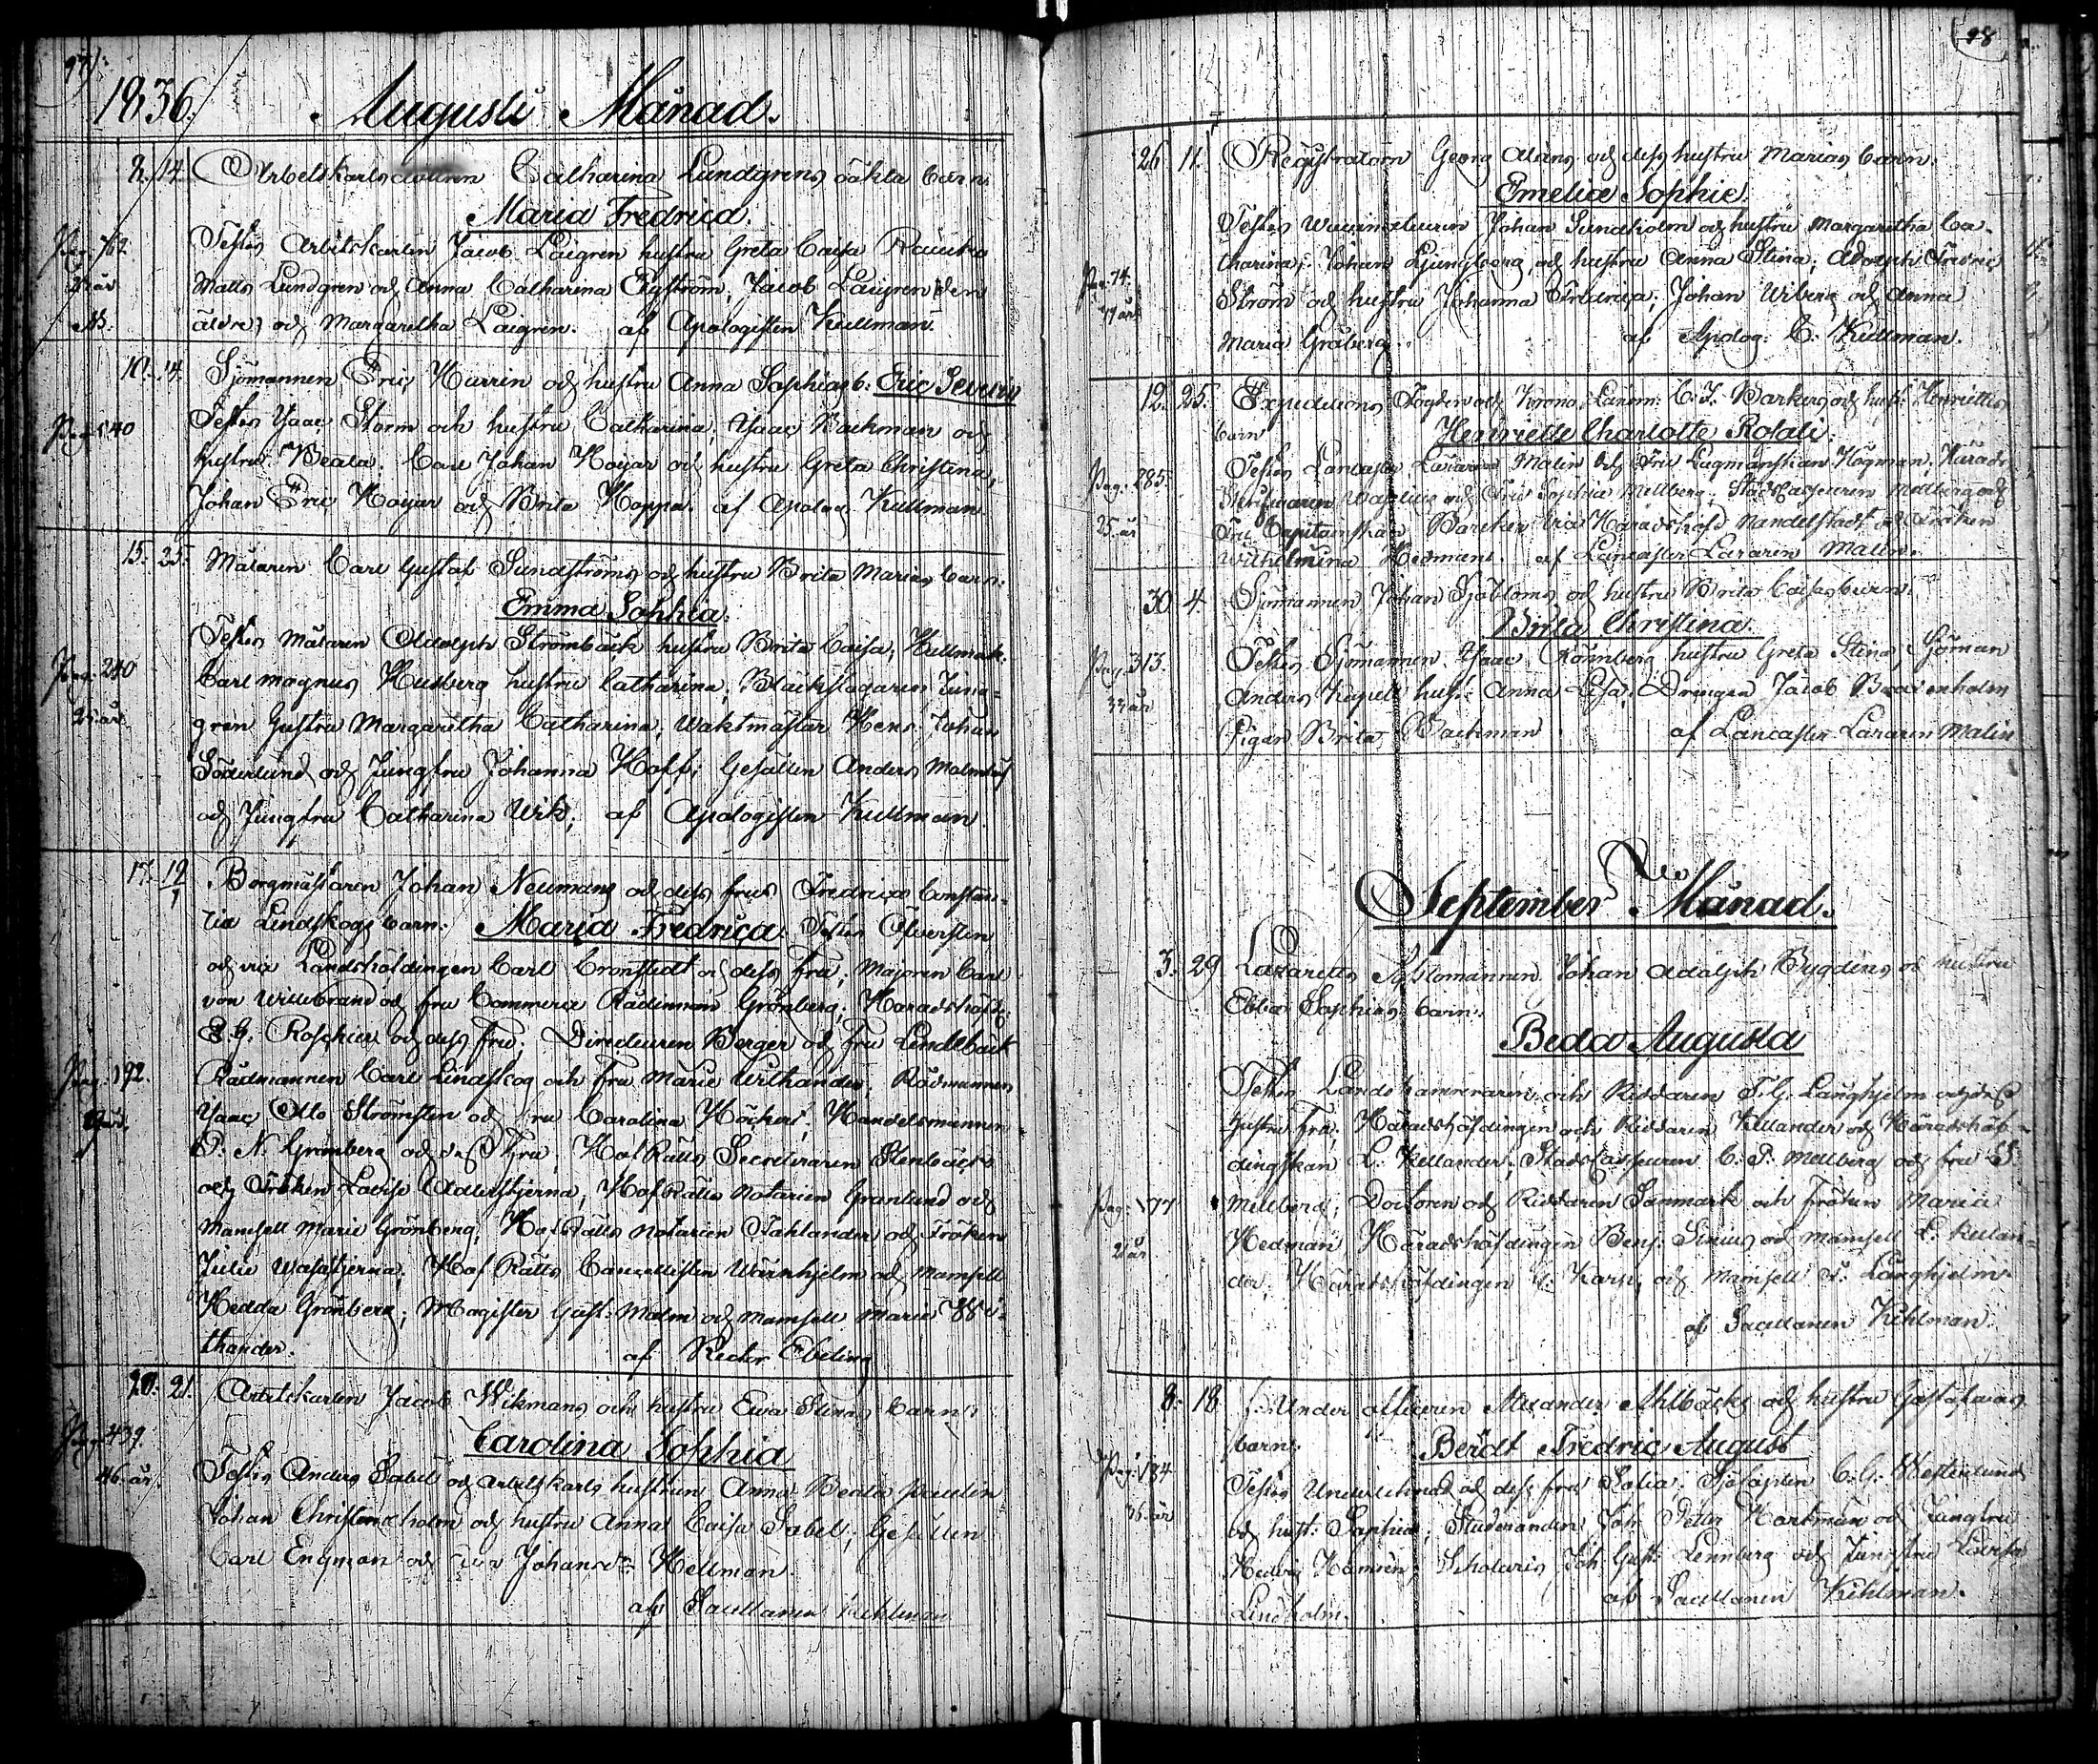 97).
1836. Augusti Månad.
8. 14. Arbetskarlsdottren Catharina Lundgrens oäkta barn
Maria Fredrica.
Pag. 762. Testes Arbetskarlen Jacob Laigren hustru Greta Caisa
Matts Lundgren och Anna Catharina Nyström, Jacob Laigren den
äldre, och Margaretha Laigren. af Apologisten Kullman.
10. 14. Sjömannen Eric Harrin och hustru Anna Sophias b: Eric Severin
Pag. 540 Testes Isaac Storm och hustru Catharina, Isaac Backman och
hustru Beata. Carl Johan Hoijar och hustru Greta Christina,
Johan Eric Hoijar och Brita Hoppa. af Apolog. Kullman.
15. 25. Målaren Carl Gustaf Sundströms och hustru Brita Marias barn:
Emma Sophia.
Pag. 240 Testes Målaren Adolph Strömbäck hustru Brita Caisa,
Carl Magnus Husberg hustru Catharina, Bläckslagaren Jung=
25 år gren hustru Margaretha Catharina, Waktmästar Hens Johan
Söderlund och Jungfru Johanna Hoff; Gesällen Anders
och Jungfru Catharina Wik; af Apologisten Kullman
17. 19/1 Borgmästaren Johan Neumans och dess frus Fredrica Constan-
tia Lindskogs barn: Maria Fredrica: Testes Öfversten
och Landshöfdingen Carl Cronstedt och dess Fru; Majoren Carl
von Willebrand och fru Commerce Rådinnan Grönberg; Häradshöfd:
E. G. Roschier och dess fru; Directeuren Berger och fru Lindebäck
Pag. 192. Rådmannen Carl Lindskog och Fru Marie Withander; Rådmannen
Isaac Otto Strömsten och fru Carolina Höckert; Handelsmannen
P. N. Grönberg och dess Fru; Hof Rätts Secreteraren Stenbäck
och Fröken Lovise Adlerstjerna; Hof Rätts Notarien Granlund och
Mamsell Marie Grönberg; Hof Rätts Notarien Stahlander och Fröken
Julie Wasastjerna; Hof Rätts Cancellisten Wärnhjelm och Mamsell
Hedda Grönberg; Magister Gust: Malm och Mamsell Marie Wi-
thander. af Rector Ebeling
20. 21. Arbetskarlen Jacob Wikmans och hustru Ewa Stinas barn:
Pag. 439. Carolina Sophia
46 år Testes Anders Sabel och arbetskarls hustrun Anna Beata Paulin
Johan Christierneholm och hustru Anna Caisa Sabel; Gesällen
Carl Engman och Johansdr Hellman.
af Sacellanen Kihlman
98
26 11. Registratorn Georg Aléns och dess hustru Marias barn:
Emelie Sophie.
Testes Johan Sundholm och hustru Margaretha Ca-
Pag. 74. tharina; Johan Ljungberg och hustru Anna Stina; Adolph Fredric
Ström och hustru Johanna Fredrica; Johan Wiberg och Anna
Maria Gråberg. af Apolog. C. Kullman.
12. 25. Expeditions Fogden och Krono Länsm: C. J. Barkers och hust: Henriettes
barn Henriette Charlotte Rosali.
Pag: 285. Testes Lancaster Läraren Malin och Fru Lagmanskan Högman; Härads
Skrifvaren och Fru Sophie Mellberg; Stads Casseuren Mellberg och
25 år Fru Capitainskan Häradshöfd Nandelstadt och Fröken
Wilhelmina Hedman. af Lancaster Läraren Malin.
30 4. Sjömannen Johan Sjöbloms och hustru Brita Caisas barn:
Brita Christina.
Pag. 313. Testes Sjömannen Isaac Rönnberg hustru Greta Stina; Sjöman
Anders Kapell hust: Anna Lisa; Drengen Jacob
Pigan Brita Backman af Lancaster Läraren Malin
September Månad.
3. 29 Lazaretts Sysslomannen Johan Adolph Bygdens och hustru
Ebba Sophias barn:
Beda Augusta
Testes Lands Kamreraren och Riddaren F. G. Langhjelm och dess
hustru Fru; Häradshöfdingen och Riddaren Kellander och Häradshöf-
dingskan L. Kellander; Stads Casseuren C. P. Mellberg och fru S.
Pag: 177 Mellberg; Doctoren och Riddaren Sanmark och Fröken Maria
21 år Hedman; Häradshöfdingen Benj. Sirius och Mamsell L. Kellan=
der; Häradshöfdingen Karsp och Mamsell Langhjelm.
af Sacellanen Kihlman.
8. 18 f: Under officeren Alexander Ahlbäcks och hustru Gustafwas
barn: Berndt Fredric August
Pag. 184 Testes och dess fru Sofia; Sjöcapten C. G. Westerlund
36 år och hust: Sophia; Studeranden Joh: Petter Hartman och Jungfru
Hedvig Hamrén; Scholaris Joh: Gust: Lennberg och Jungfru Lovisa
Lindholm. af Sacellanen Kihlman.